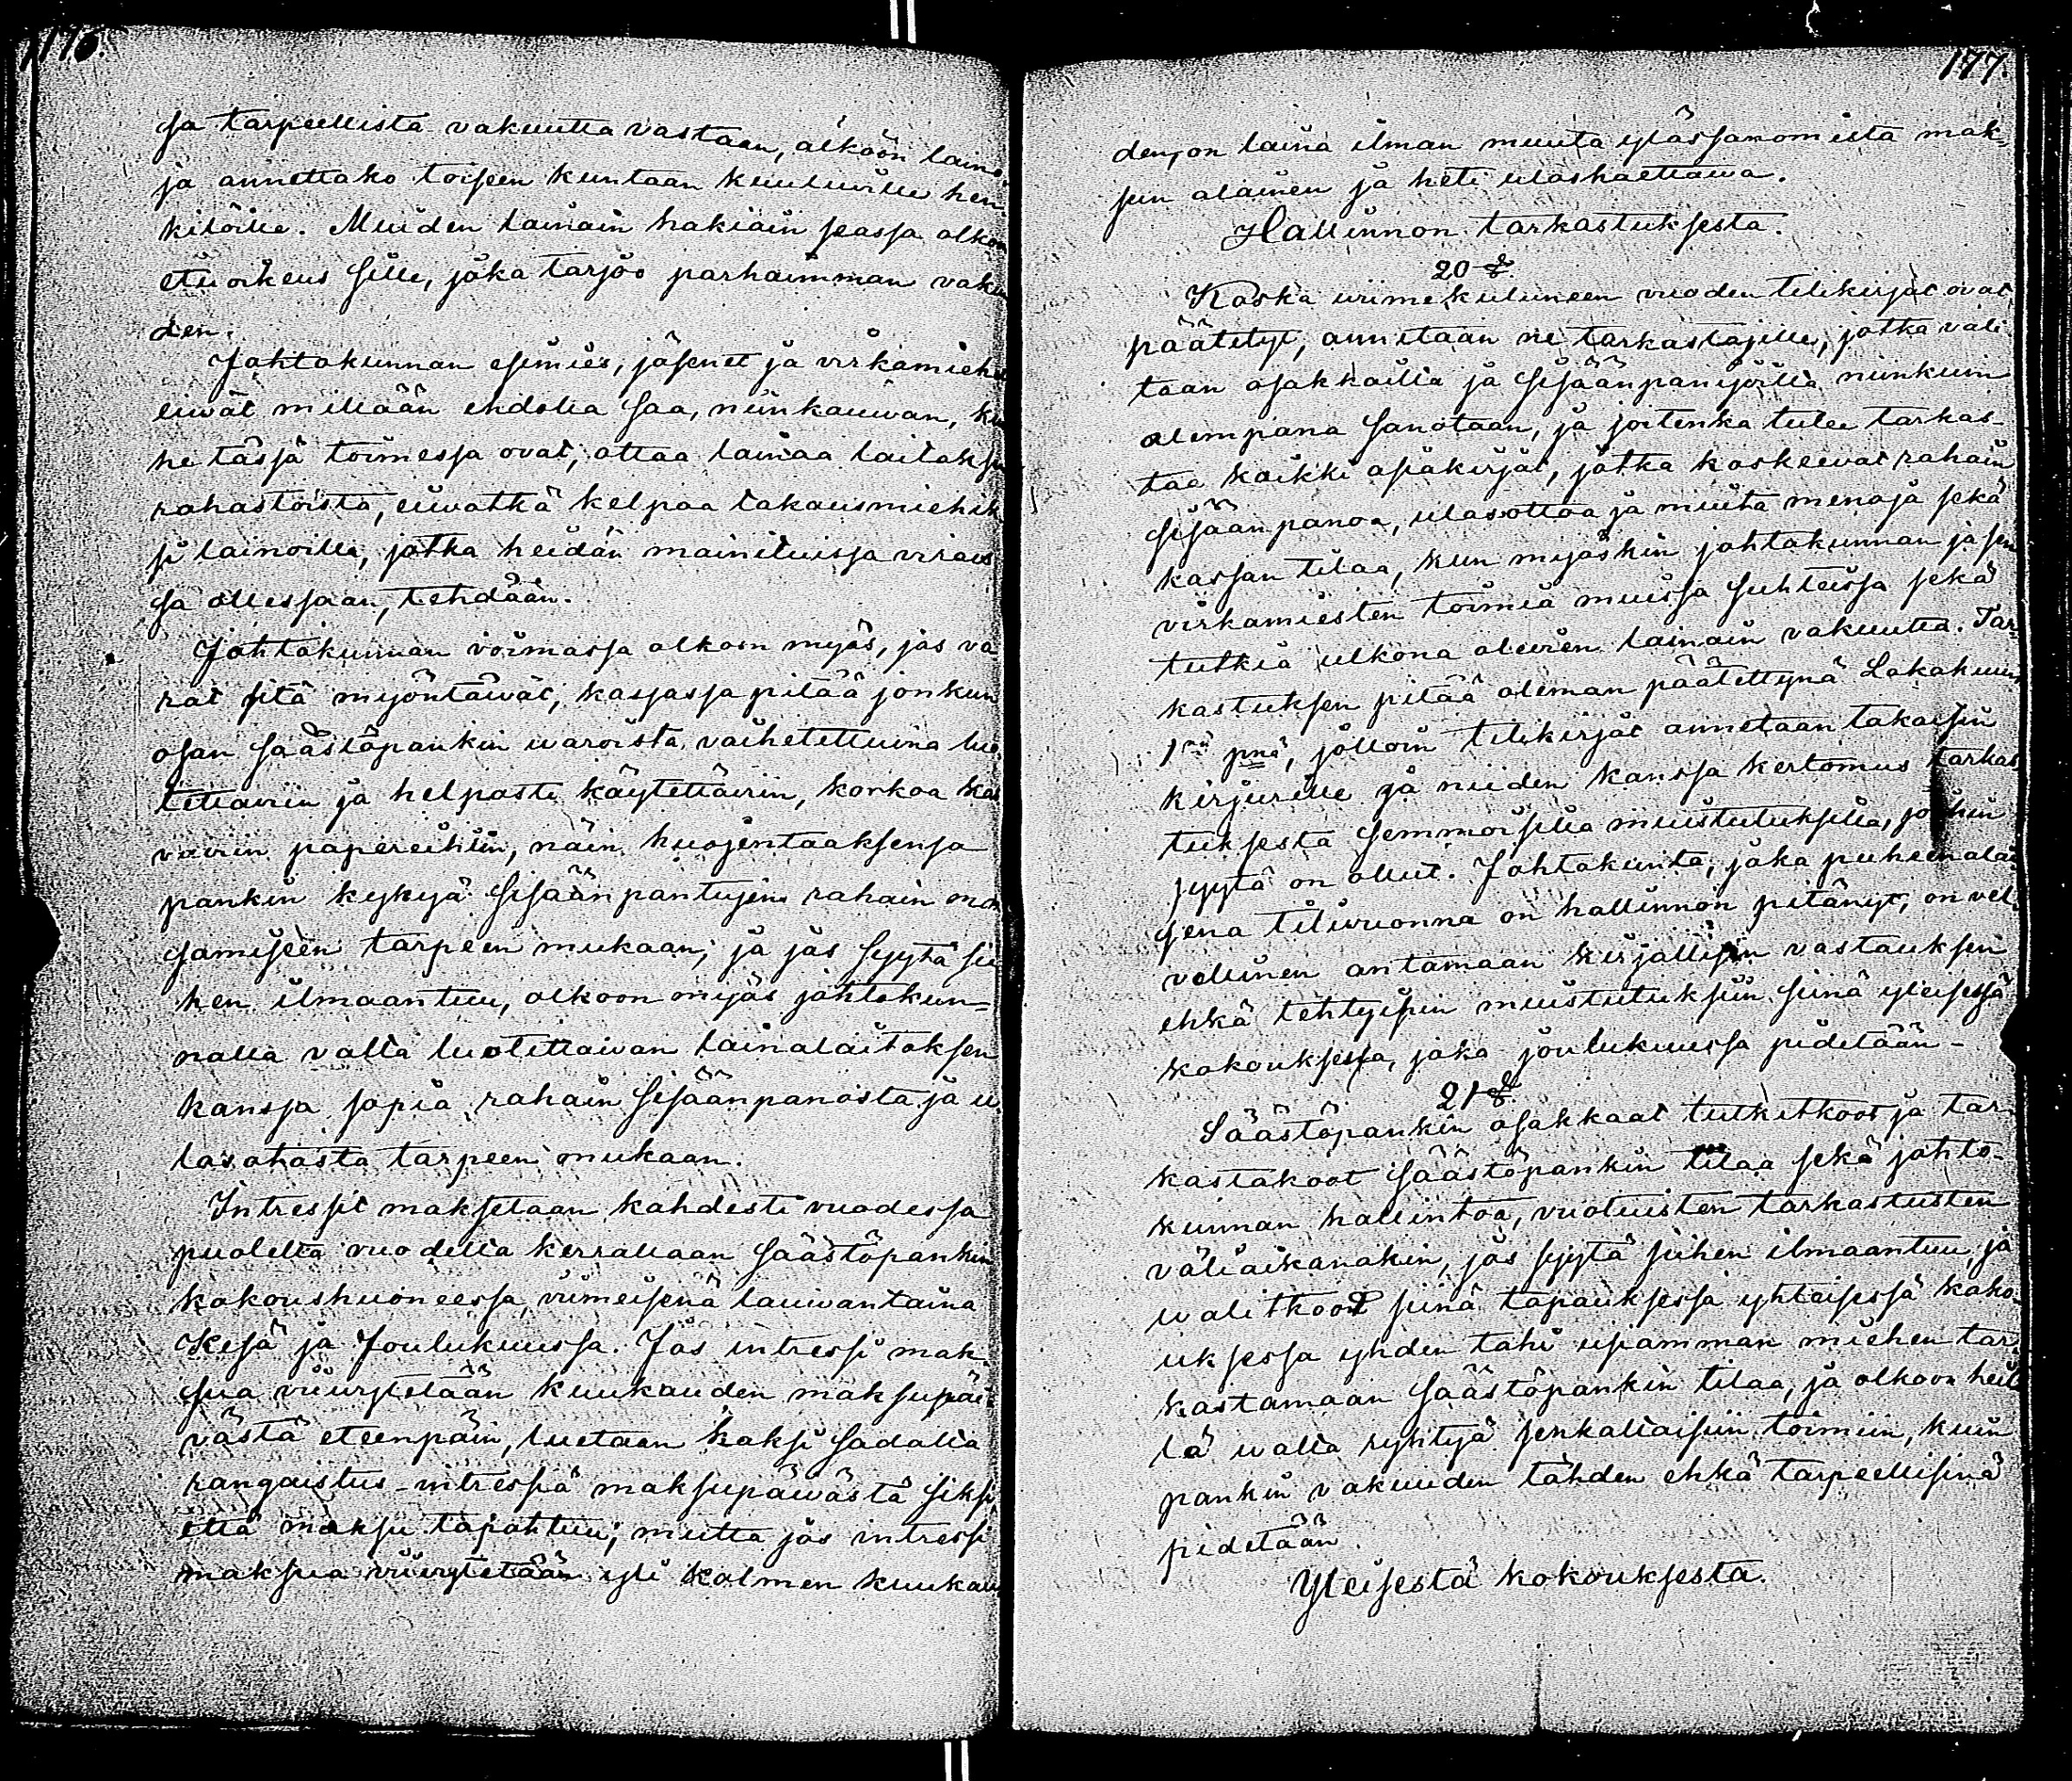 176.
sa tarpeellista vakuutta vastaan, älköön laino-
ja annettako toiseen kuntaan kuuluville hen-
kilöille. Muiden lainain hakiain seassa olkon
etuoikeus sille, joka tarjoo parhaimman vakuu
den.
Johtokunnan esimies, jäsenet ja virkamiehet
eiwät millään ehdolla saa, niinkauwan, kun
he täsjä toimessa ovat, ottaa lainaa laitoksen
rahastoista, eiwatkä kelpaa takausmiehik
si lainoille, jotka heidän mainituissa virais
sa ollessaan, tehdään.
Johtokunnan voimassa olkoon myös, jos va
rat sitä myöntäwät, kassassa pitää jonkun
osan säästöpankin waroista vaihetettuina luo
tettaviin ja helposti käytettäviin, korkoa kas
vaviin papereihiin, näin huojentaaksensa
pankin kykyä sisäänpantujen rahain mak
samiseen tarpeen mukaan; ja jos syytä sii
hen ilmaantuu, olkoon myös johtokun-
nalla valta luotettaivan lainalaitoksen
kanssa sopia rahain sisäänpanosta ja u
losotosta tarpeen mukaan.
Intressit maksetaan kahdesti vuodessa
puolelta vuodelta kerrallaan Säästöpankin
kokoushuoneessa, viimeisenä lauwantaina
Kesä ja Joulukuussa. Jos intressi mak-
sua viivytetään kuukauden maksupäi-
västä eteenpäin, luetaan kaksi sadalta
rangaistus-intressiä maksupäiwästä siksi
että maksu tapahtuu; mutta jos intressi
maksua viivytetään yli kolmen kuukau
177.
den, on laina ilman muuta ylössanomista mak-
sun alainen ja heti uloshaettawa.
Hallinnon tarkastuksesta.
20 §.
Koska viimekuluneen vuoden tilikirjat ovat
päätetyt, annetaan ne tarkastajille, jotka vali
taan osakkailta ja sisäänpanijoilta niinkuin
alempana sanotaan, ja joitenka tulee tarkas-
taa kaikki asiakirjat, jotka koskeevat rahain
sisäänpanoa, ulosottoa ja muita menoja sekä
kassan tilaa, kun myöskin johtokunnan ja sen
virkamiesten toimia muissa suhteissa sekä
tutkia ulkona olevien lainain vakuutta. Tar-
kastuksen pitää oleman päätettynä Lokakuun
1nä pnä, jolloin tilikirjat annetaan takaisin
kirjurille ja niiden kanssa kertomus tarkas
tuksesta semmoisilla muistutuksilla, johin
syytä on ollut. Johtokunta, joka puheenalai
sena tiliwuonna on hallinnon pitänyt, on vel-
vollinen antamaan kirjallisen vastauksen
ehkä tehtyisin muistutuksiin siinä yleisessä
kokouksessa, joka joulukuussa pidetään-
21 §.
Säästöpankin osakkaat tutkitkoot ja tar-
kastakoot säästöpankin tilaa sekä johto-
kunnan hallintoa, vuotuisten tarkastusten
väliaikanakin, jos syytä siihen ilmaantuu, ja
walitkoot siinä tapauksessa yhteisessä koko-
uksessa yhden tahi usamman miehen tar-
kastamaan säästöpankin tilaa, ja olkoon heil
lä walta ryhtyä senkaltaisiin toimiin, kuin
pankin vakuuden tähden ehkä tarpeellisinä
pidetään.
Yleisestä kokouksesta.